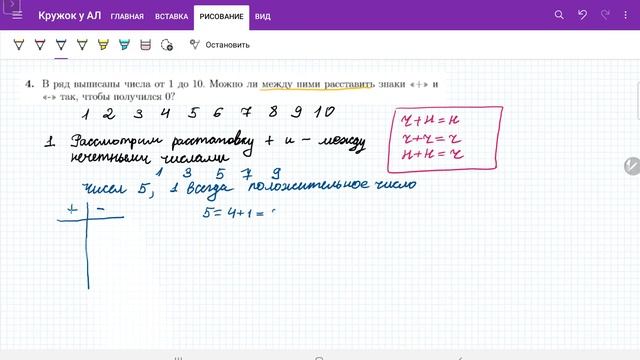 Кружок у АЛ ГЛАВНАЯ ВСТАВКА РИСОВАНИЕ ВИД
Остановить
4. В ряд выписаны числа от 1 до 10. Можно ли между ними расставить знаки «+» и
«-» так, чтобы получился 0?
1 2 3 4 5 6 7 8 9 10
1. Рассмотрим расстановку + и - между
нечетными числами
ч+н=н
ч+ч=ч
н+н=ч
1 3 5 7 9
чисел 5, 1 всегда положительное число
+ -
5=4+1=